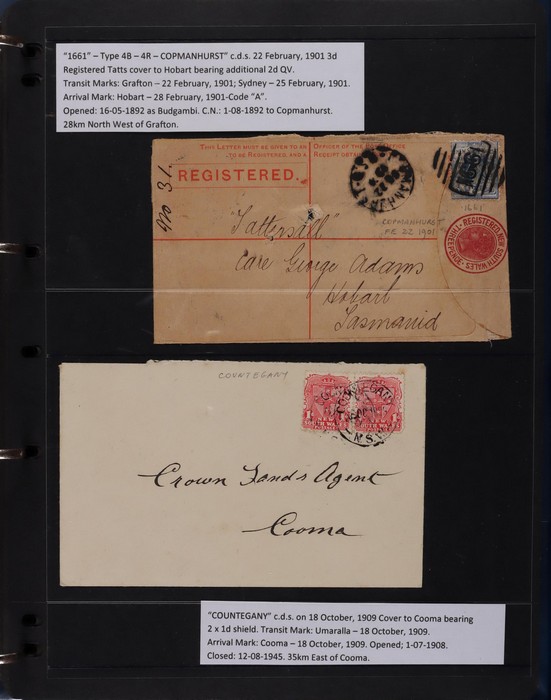 "1661" – Type 4B – 4R – COPMANHURST" c.d.s. 22 February, 1901 3d
Registered Tatts cover to Hobart bearing additional 2d QV.
Transit Marks: Grafton – 22 February, 1901; Sydney – 25 February, 1901.
Arrival Mark: Hobart – 28 February, 1901-Code "A".
Opened: 16-05-1892 as Budgambi. C.N.: 1-08-1892 to Copmanhurst.
28km North West of Grafton.
THIS LETTER MUST BE GIVEN TO AN OFFICER OF THE POST OFFICE
TO BE REGISTERED, AND A RECEIPT
REGISTERED.
No 31.
"Tattersall"
Care George Adams
Hobart
Tasmania
1661
COPMANHURST
FE 22 1901
REGISTERED, NEW SOUTH WALES
THREEPENCE
COUNTEGANY
SOUTH WALES
SOUTH WALES
N.S.W
Crown Lands Agent
Cooma
"COUNTEGANY" c.d.s. on 18 October, 1909 Cover to Cooma bearing
2 x 1d shield. Transit Mark: Umaralla – 18 October, 1909.
Arrival Mark: Cooma – 18 October, 1909. Opened; 1-07-1908.
Closed: 12-08-1945. 35km East of Cooma.